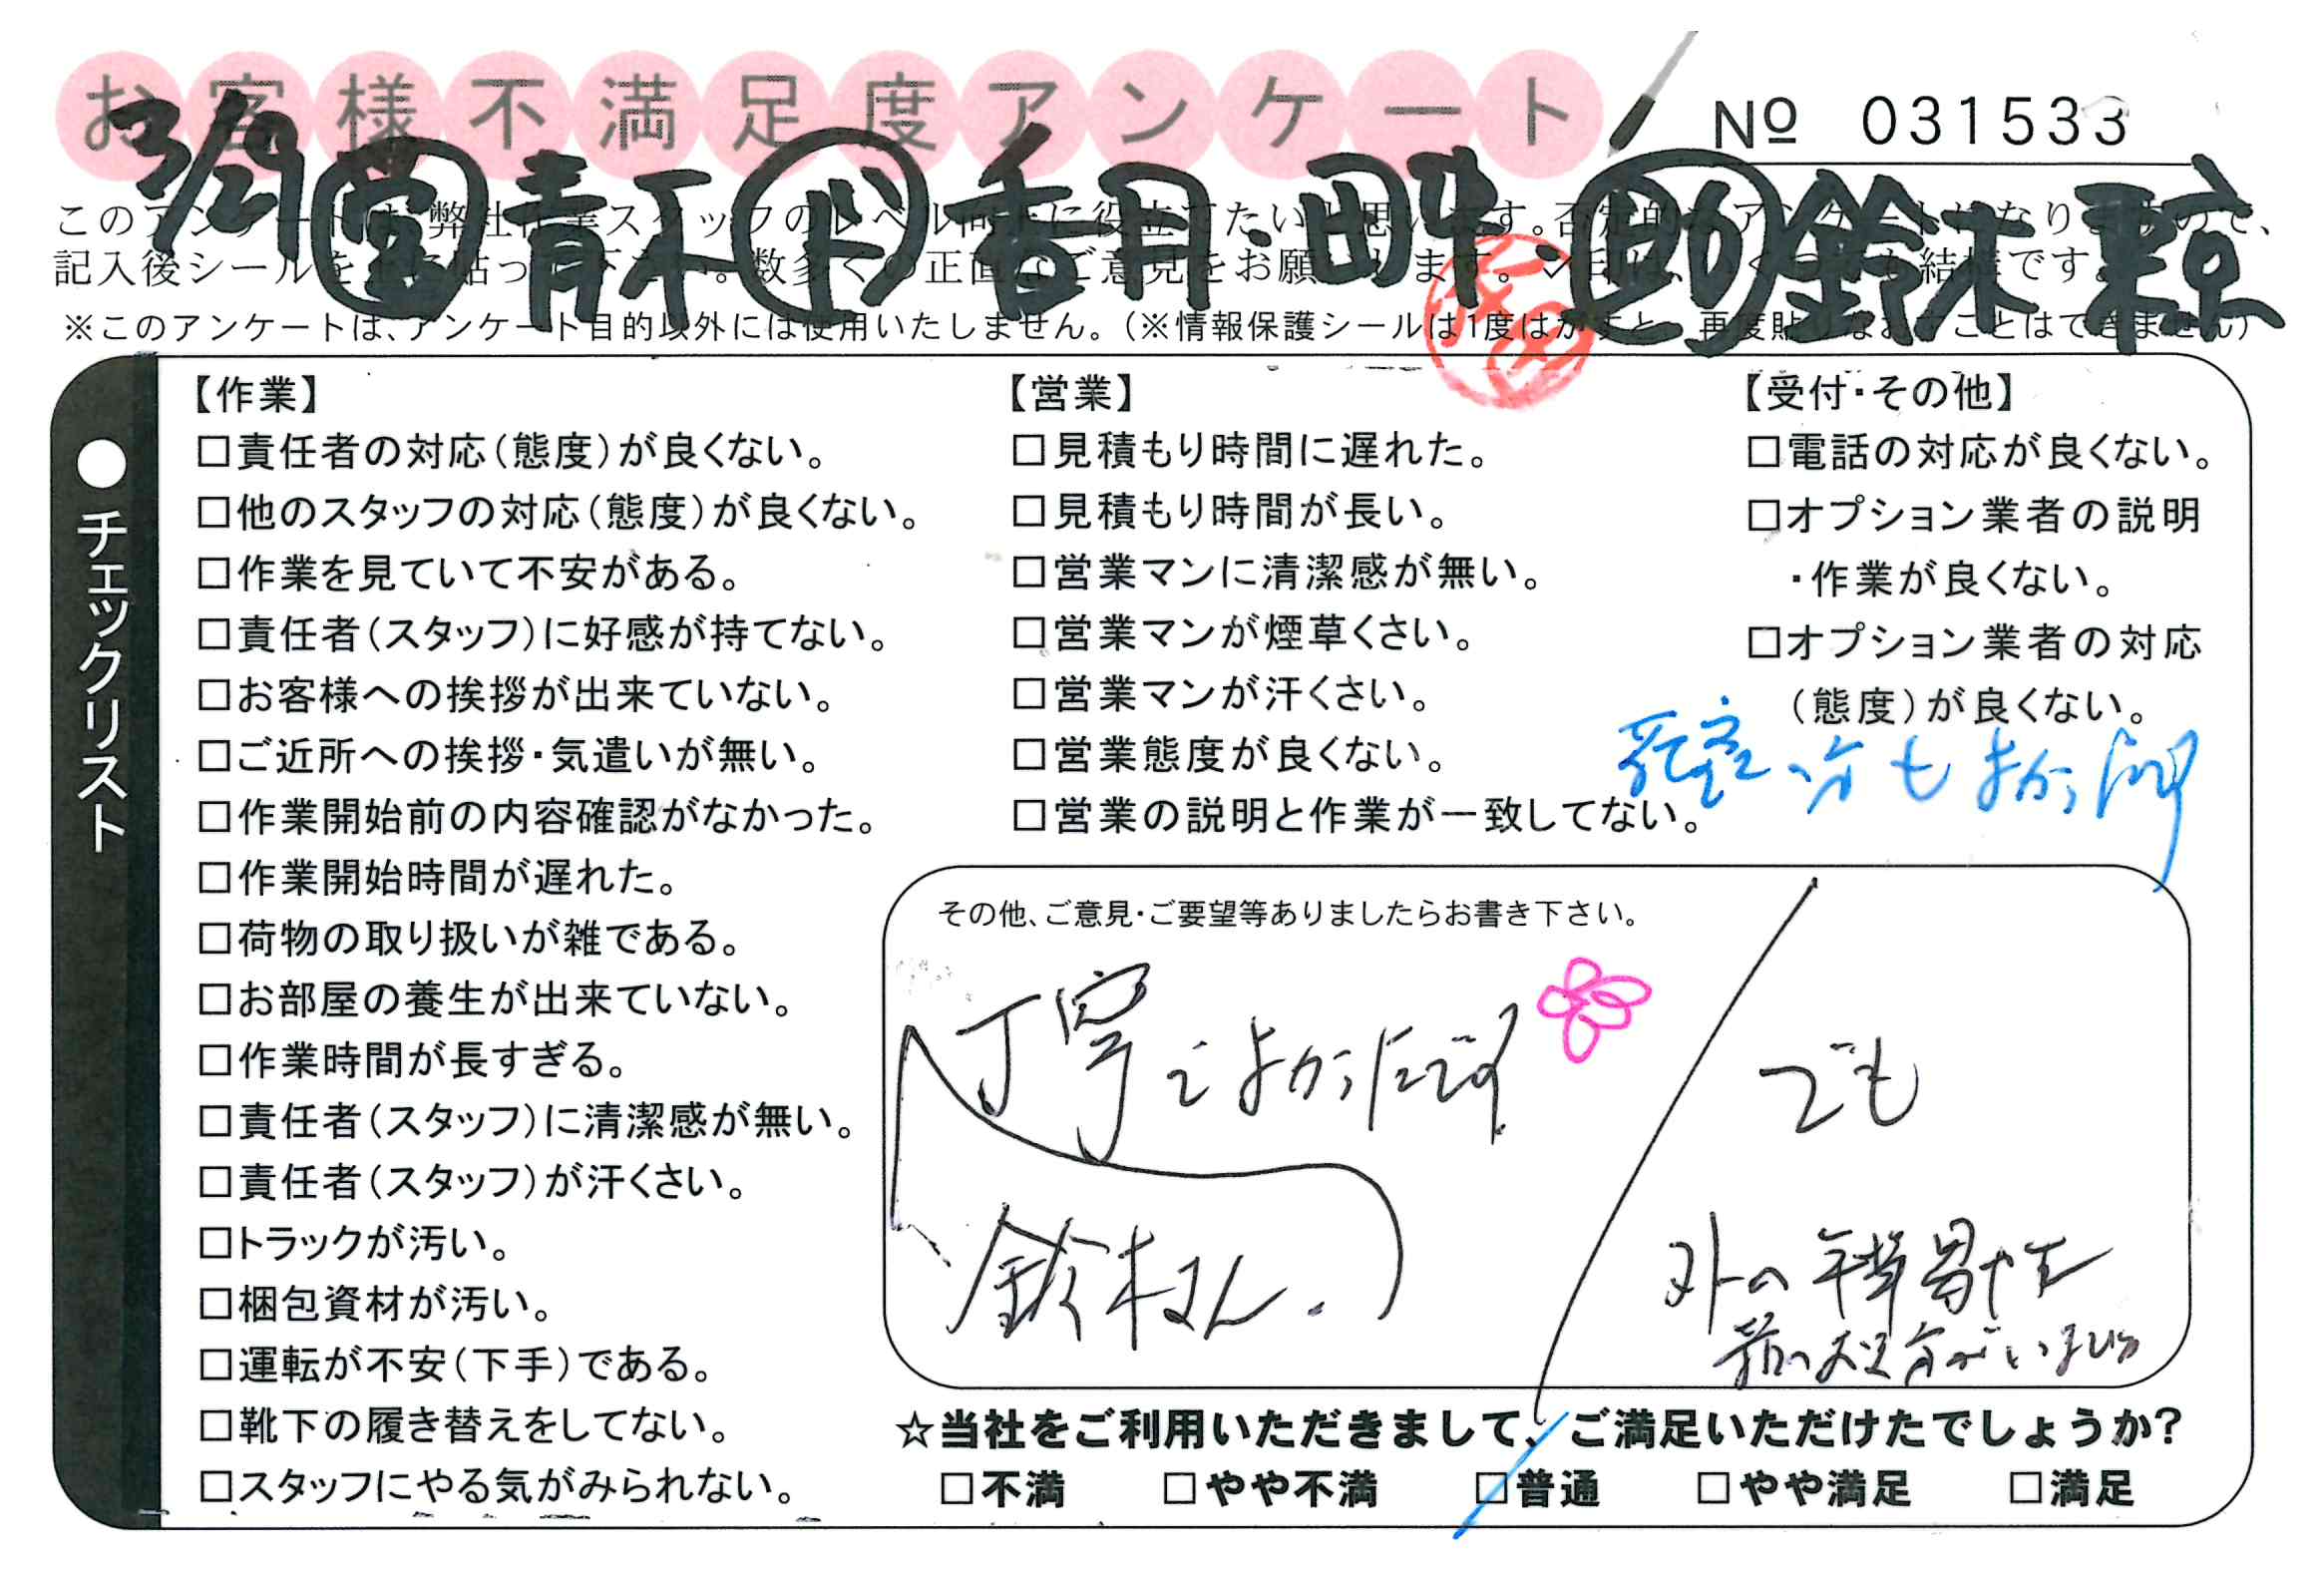 お客様不満足度アンケート
№ 031533
3/29 営 青木 ド 香月・田中 助 鈴木 凛
このアンケートは、弊社作業スタッフのレベル向上に役立てたいと思います。否定的なアンケートになりますので、
記入後シールを上に貼って下さい。数多くの正直なご意見をお願いします。
※このアンケートは、アンケート目的以外には使用いたしません。(※情報保護シールは1度はがすと、再度貼りなおすことはできません)
●チェックリスト
【作業】
□責任者の対応(態度)が良くない。
□他のスタッフの対応(態度)が良くない。
□作業を見ていて不安がある。
□責任者(スタッフ)に好感が持てない。
□お客様への挨拶が出来ていない。
□ご近所への挨拶・気遣いが無い。
□作業開始前の内容確認がなかった。
□作業開始時間が遅れた。
□荷物の取り扱いが雑である。
□お部屋の養生が出来ていない。
□作業時間が長すぎる。
□責任者(スタッフ)に清潔感が無い。
□責任者(スタッフ)が汗くさい。
□トラックが汚い。
□梱包資材が汚い。
□運転が不安(下手)である。
□靴下の履き替えをしてない。
□スタッフにやる気がみられない。
【営業】
□見積もり時間に遅れた。
□見積もり時間が長い。
□営業マンに清潔感が無い。
□営業マンが煙草くさい。
□営業マンが汗くさい。
□営業態度が良くない。
□営業の説明と作業が一致してない。
【受付・その他】
□電話の対応が良くない。
□オプション業者の説明
・作業が良くない。
□オプション業者の対応
(態度)が良くない。
その他、ご意見・ご要望等ありましたらお書き下さい。
丁寧でよかったです
鈴木さん.
でも
外の
☆当社をご利用いただきまして、ご満足いただけたでしょうか?
□不満 □やや不満 □普通 □やや満足 □満足